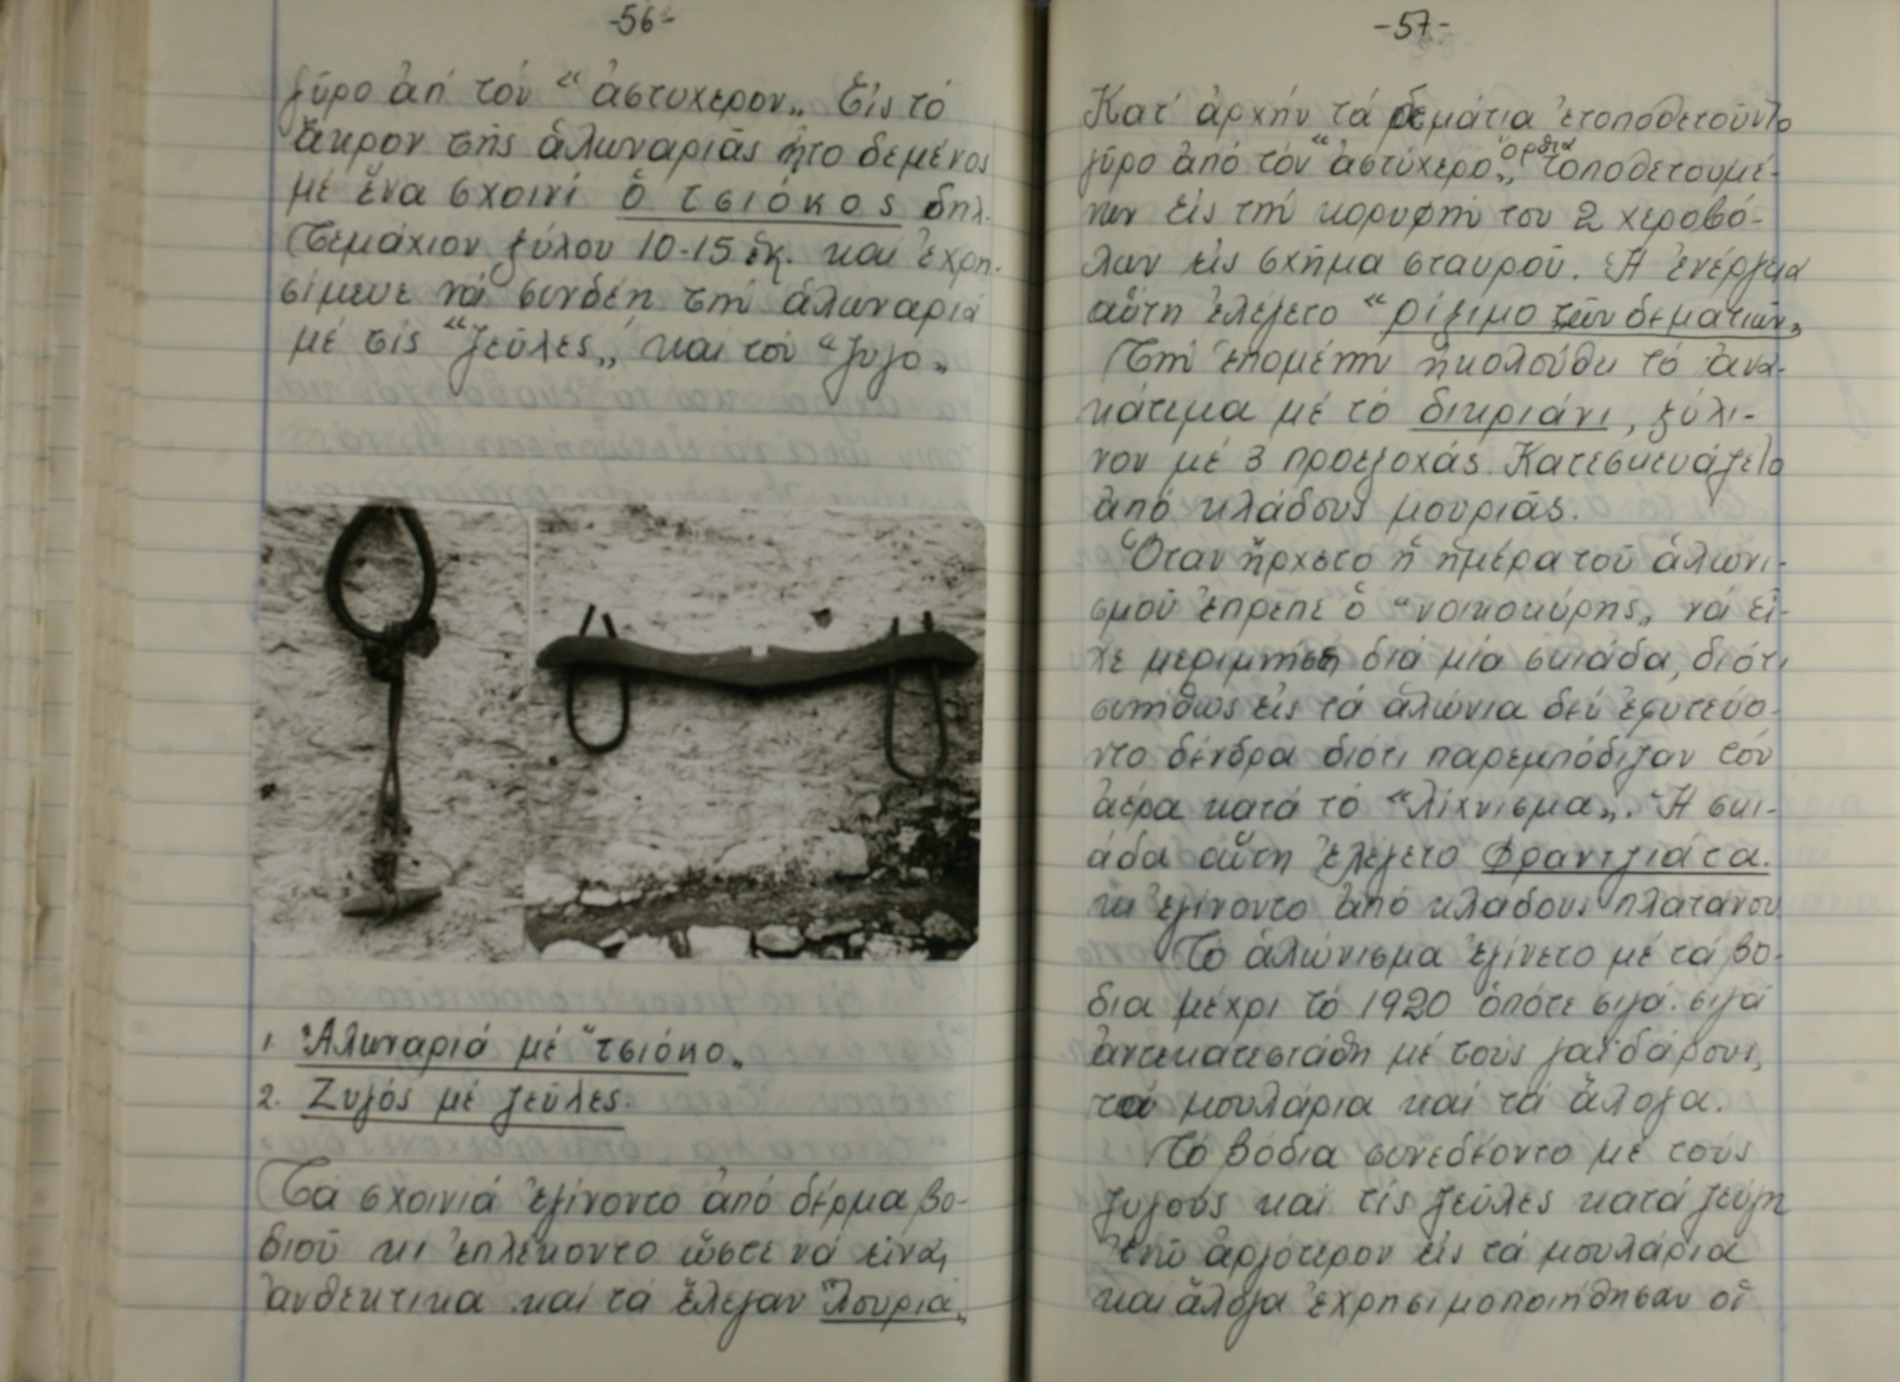 -56-
γῦρο ἀπ' τόν "ἀστυχερον„ Εἰς τό
ἄκρον τῆς ἁλωναριᾶς ἦτο δεμένος
μέ ἕνα σχοινί ὁ τσιόκος δηλ.
Τεμάχιον ξύλου 10-15 ἑκ. καί ἐχρη-
σίμευε νά συνδέη τήν ἁλωναριά
μέ τίς "ζεῦλες„ καί τόν "ζυγό„
1. Ἁλωναριά μέ "τσιόκο„
2. Ζυγός μέ ζεῦλες.
Τά σχοινιά ἐγίνοντο ἀπό δέρμα βο-
διοῦ κι ἐπλέκοντο ὥστε νά εἶναι
ἀνθεκτικα καί τά ἔλεγαν "λουριά„
-57-
Κατ' ἀρχήν τά δεμάτια ἐτοποθετοῦντο
γῦρο ἀπό τόν "ἀστύχερο„ ὀρθια τοποθετουμέ-
νων εἰς τήν κορυφήν του 2 χεροβό-
λων εἰς σχῆμα σταυροῦ. Ἡ ἐνέργεια
αὕτη ἐλέγετο "ρίξιμο τῶν δεματιῶν„
Τήν ἐπομένην ἠκολούθει τό ἀνα-
κάτεμα μέ τό δικριάνι, ξύλι-
νον μέ 3 προεξοχάς. Κατεσκευάζετο
ἀπό κλάδους μουριᾶς.
Ὅταν ἤρχετο ἡ ἡμέρα τοῦ ἁλωνι-
σμοῦ ἔπρεπε ὁ "νοικοκύρης„ νά εἶ-
χε μεριμνήση διά μία σκιάδα, διότι
συνήθως εἰς τά ἁλώνια δέν ἐφυτεύο-
ντο δένδρα διότι παρεμπόδιζαν τόν
ἀέρα κατά τό "λίχνισμα„. Ἡ σκι-
άδα αὕτη ἐλέγετο Φραντζιάτα.
κι ἐγίνοντο ἀπό κλάδους πλατάνου
Τό ἁλώνισμα ἐγίνετο μέ τά βό-
δια μέχρι τό 1920 ὁπότε σιγά-σιγά
ἀντεκατεστάθη μέ τούς γαϊδάρους,
τά μουλάρια καί τά ἄλογα.
Τά βόδια συνεδέοντο μέ τούς
ζυγούς καί τίς ζεῦλες κατά ζεύγη
ἐνῶ ἀργότερον εἰς τά μουλάρια
καί ἄλογα ἐχρησιμοποιήθησαν οἱ